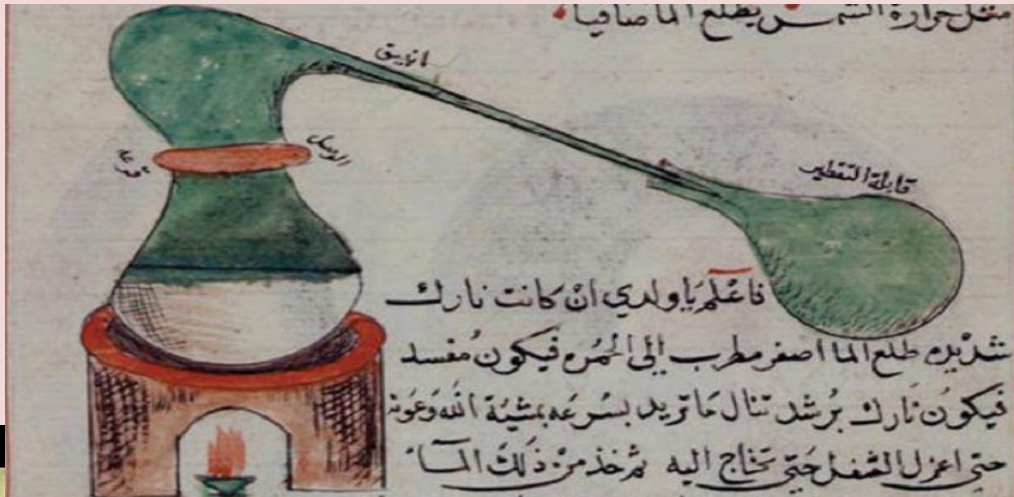 مثل حرارة الشمس يطلع الما صافيا
انبيق
الوصل
قابلة التقطير
فاعْلم يا ولدي انْ كانت نارك
شديده طلع الما اصفر مطرب الي الحمره فيكونُ مُفسد
فيكون نارك برُشد تنال ما تريد بسرعه بمشية الله وعونه
حتي اعزل الثفل حَتي تحتاج اليه ثم خذ منْ ذلك المآ